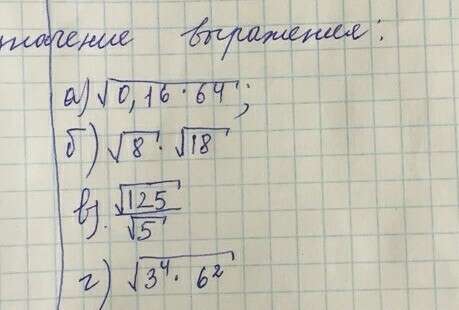 значение выражения:
а) √0,16 · 64;
б) √8 · √18
в) √125 / √5
г) √3⁴ · 6²